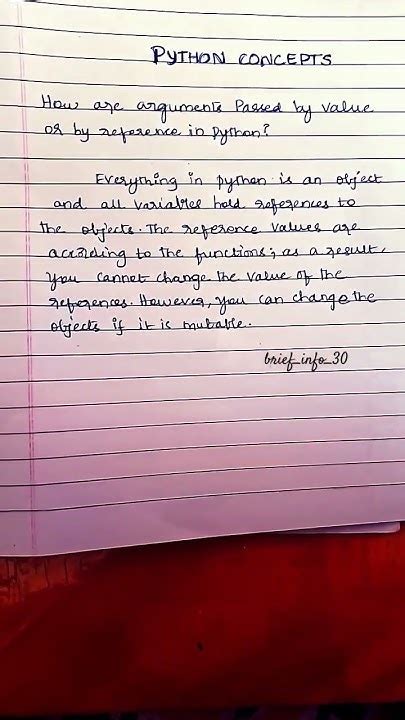 PYTHON CONCEPTS
How are arguments Passed by value
or by reference in python?
Everything in python is an object
and all variables hold references to
the objects. The reference values are
according to the functions; as a result,
you cannot change the value of the
references. However, you can change the
objects if it is mutable.
brief_info_30